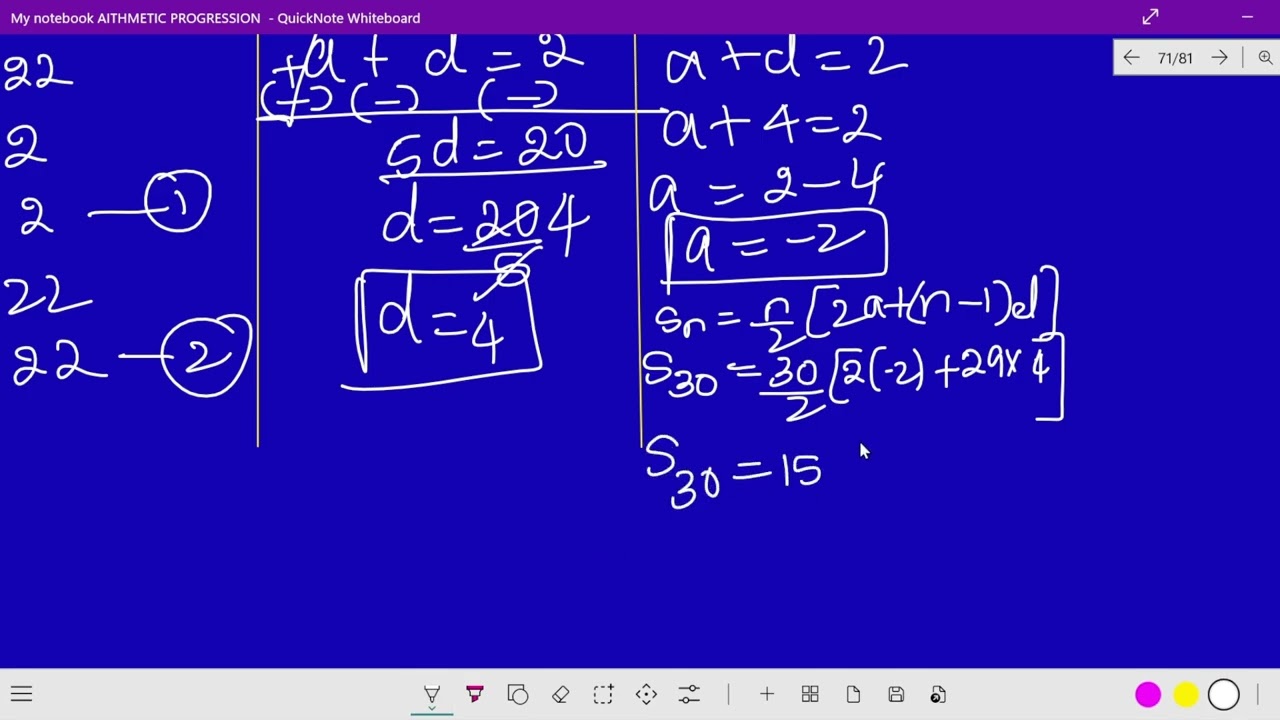 My notebook AITHMETIC PROGRESSION - QuickNote Whiteboard
71/81
22
2
2 — 1
22
22 — 2
+a + d = 2
(-) (-) (-)
5d = 20
d = 20/5 4
d = 4
a + d = 2
a + 4 = 2
a = 2 - 4
a = -2
Sn = n/2 [2a + (n - 1)d]
S30 = 30/2 [2(-2) + 29 × 4]
S30 = 15